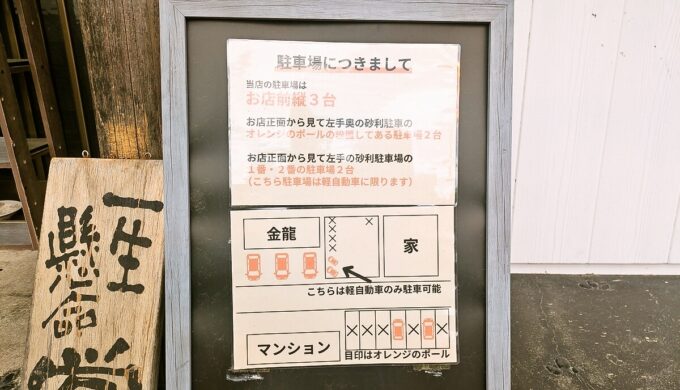 駐車場につきまして
当店の駐車場は
お店前縦３台
お店正面から見て左手奥の砂利駐車の
オレンジのポールの設置してある駐車場２台
お店正面から見て左手の砂利駐車場の
１番・２番の駐車場２台
（こちら駐車場は軽自動車に限ります）
金龍
家
こちらは軽自動車のみ駐車可能
マンション
目印はオレンジのポール
一生
懸命